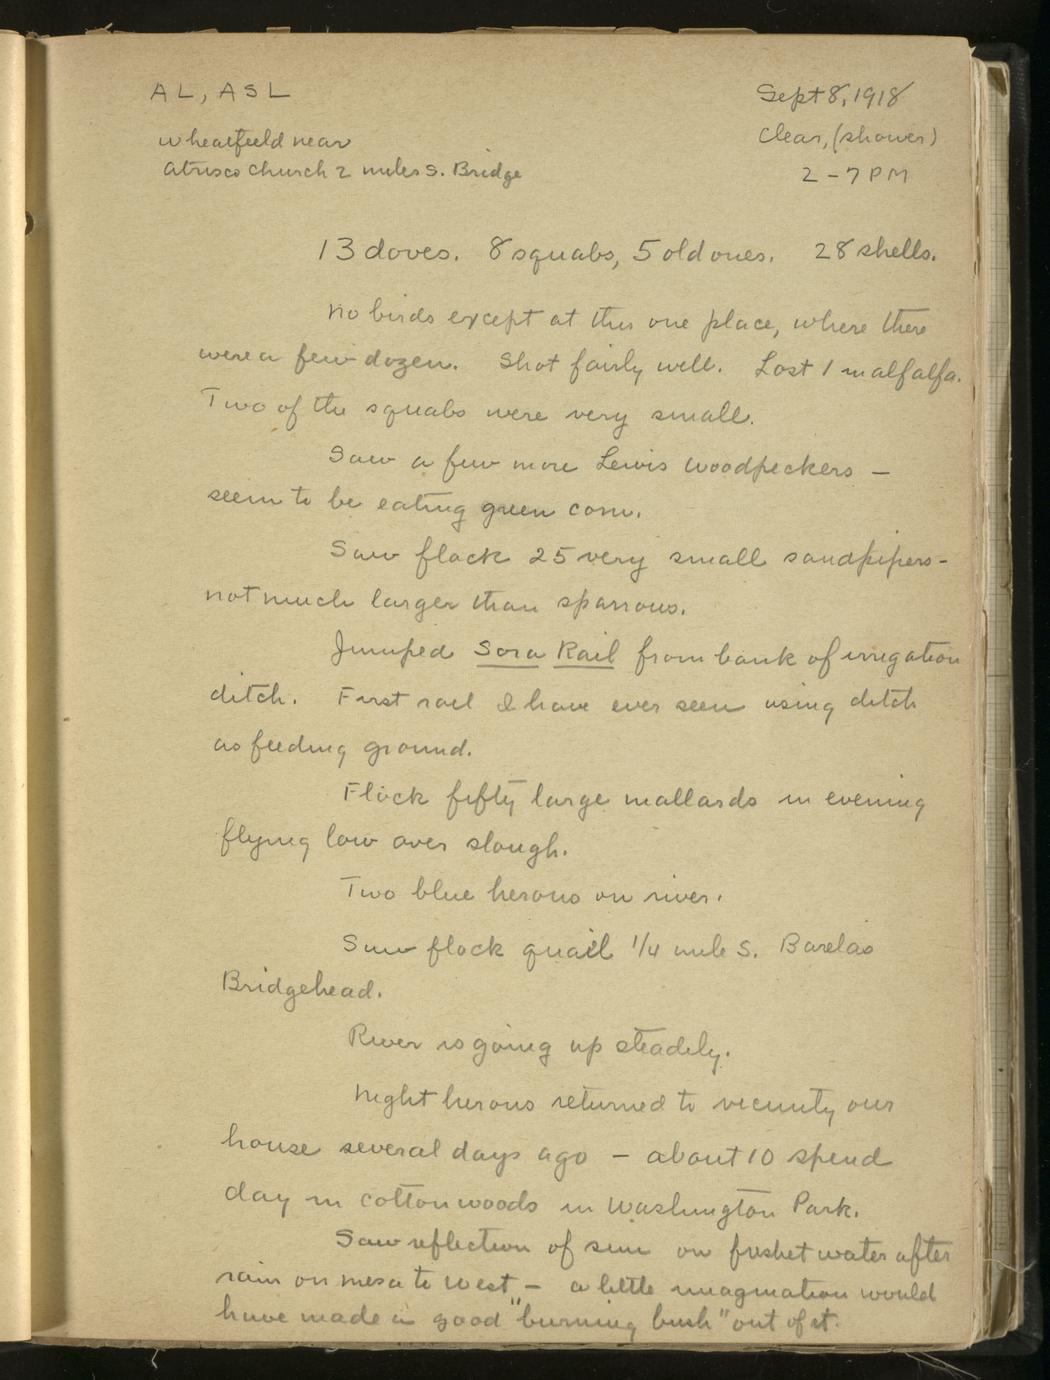 AL, ASL
Sept 8, 1918
Wheatfield near
Clear, (shower)
Atrisco Church 2 miles S. Bridge
2 - 7 PM
13 doves. 8 squabs, 5 old ones. 28 shells.
No birds except at this one place, where there
were a few dozen. Shot fairly well. Lost 1 in alfalfa.
Two of the squabs were very small.
Saw a few more Lewis Woodpeckers -
seem to be eating green corn.
Saw flock 25 very small sandpipers -
not much larger than sparrows.
Jumped Sora Rail from bank of irrigation
ditch. First rail I have ever seen using ditch
as feeding ground.
Flock fifty large mallards in evening
flying low over slough.
Two blue herons on river.
Saw flock quail 1/4 mile S. Barelas
Bridgehead.
River is going up steadily.
Night herons returned to vicinity our
house several days ago - about 10 spend
day in cottonwoods in Washington Park.
Saw reflection of sun on freshet water after
rain on mesa to West - a little imagination would
have made a good "burning bush" out of it.